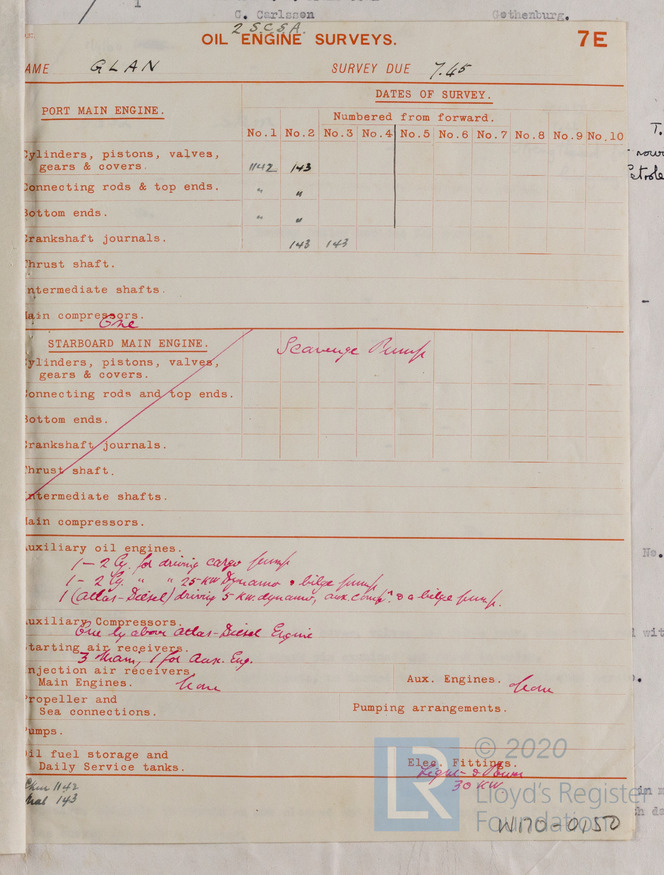 C. Carlsson Gothenburg.
2 S.C.S.A.
OIL ENGINE SURVEYS. 7E
AME GLAN SURVEY DUE 7.45
DATES OF SURVEY.
PORT MAIN ENGINE.
Numbered from forward.
No.1 No.2 No.3 No.4 No.5 No.6 No.7 No.8 No.9 No.10
ylinders, pistons, valves,
gears & covers. 1142 143
onnecting rods & top ends. " "
ottom ends. " "
rankshaft journals. 143 143
hrust shaft.
ntermediate shafts.
ain compressors.
One
STARBOARD MAIN ENGINE. Scavenge Pump
ylinders, pistons, valves,
gears & covers.
onnecting rods and top ends.
ottom ends.
rankshaft journals.
hrust shaft.
ntermediate shafts.
ain compressors.
uxiliary oil engines.
1 - 2 Cy. for driving cargo pump
1 - 2 Cy. " " 25 KW Dynamo & bilge pump
1 (Atlas-Diesel) driving 5 KW dynamo, aux. comp. & a bilge pump.
uxiliary Compressors.
One by above Atlas-Diesel Engine
tarting air receivers.
3 Main, 1 for Aux. Eng.
njection air receivers
Main Engines. None Aux. Engines. None
ropeller and
Sea connections. Pumping arrangements.
umps.
il fuel storage and
Daily Service tanks. Elec. Fittings.
Light & Power
30 KW
1142
143
© 2020
LR
Lloyd's Register
Foundation
W170-0150